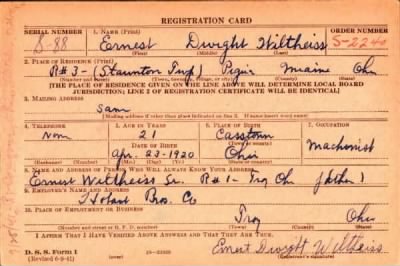 REGISTRATION CARD
SERIAL NUMBER 1. NAME (Print) ORDER NUMBER
S-88 Ernest Dwight Wiltheiss S-2240
(First) (Middle) (Last)
2. PLACE OF RESIDENCE (Print)
R#3-(Staunton Twp) Piqua Miami Ohio
(Number and street) (Town, township, village, or city) (County) (State)
[THE PLACE OF RESIDENCE GIVEN ON THE LINE ABOVE WILL DETERMINE LOCAL BOARD
JURISDICTION; LINE 2 OF REGISTRATION CERTIFICATE WILL BE IDENTICAL]
3. MAILING ADDRESS
Same
(Mailing address if other than place indicated on line 2. If same insert word same)
4. TELEPHONE 5. AGE IN YEARS 6. PLACE OF BIRTH 7. OCCUPATION
None 21 Casstown Machinist
DATE OF BIRTH (Town or county)
Apr. 23-1920 Ohio
(Exchange) (Number) (Mo.) (Day) (Yr.) (State or country)
8. NAME AND ADDRESS OF PERSON WHO WILL ALWAYS KNOW YOUR ADDRESS
Ernest Wiltheiss Sr. R#1-Troy Ohio (father)
9. EMPLOYER'S NAME AND ADDRESS
Hobart Bros. Co
10. PLACE OF EMPLOYMENT OR BUSINESS
Troy Ohio
(Number and street or R. F. D. number) (Town) (County) (State)
I AFFIRM THAT I HAVE VERIFIED ABOVE ANSWERS AND THAT THEY ARE TRUE.
D. S. S. Form 1 Ernest Dwight Wiltheiss
(Revised 6-9-41) (Registrant's signature)